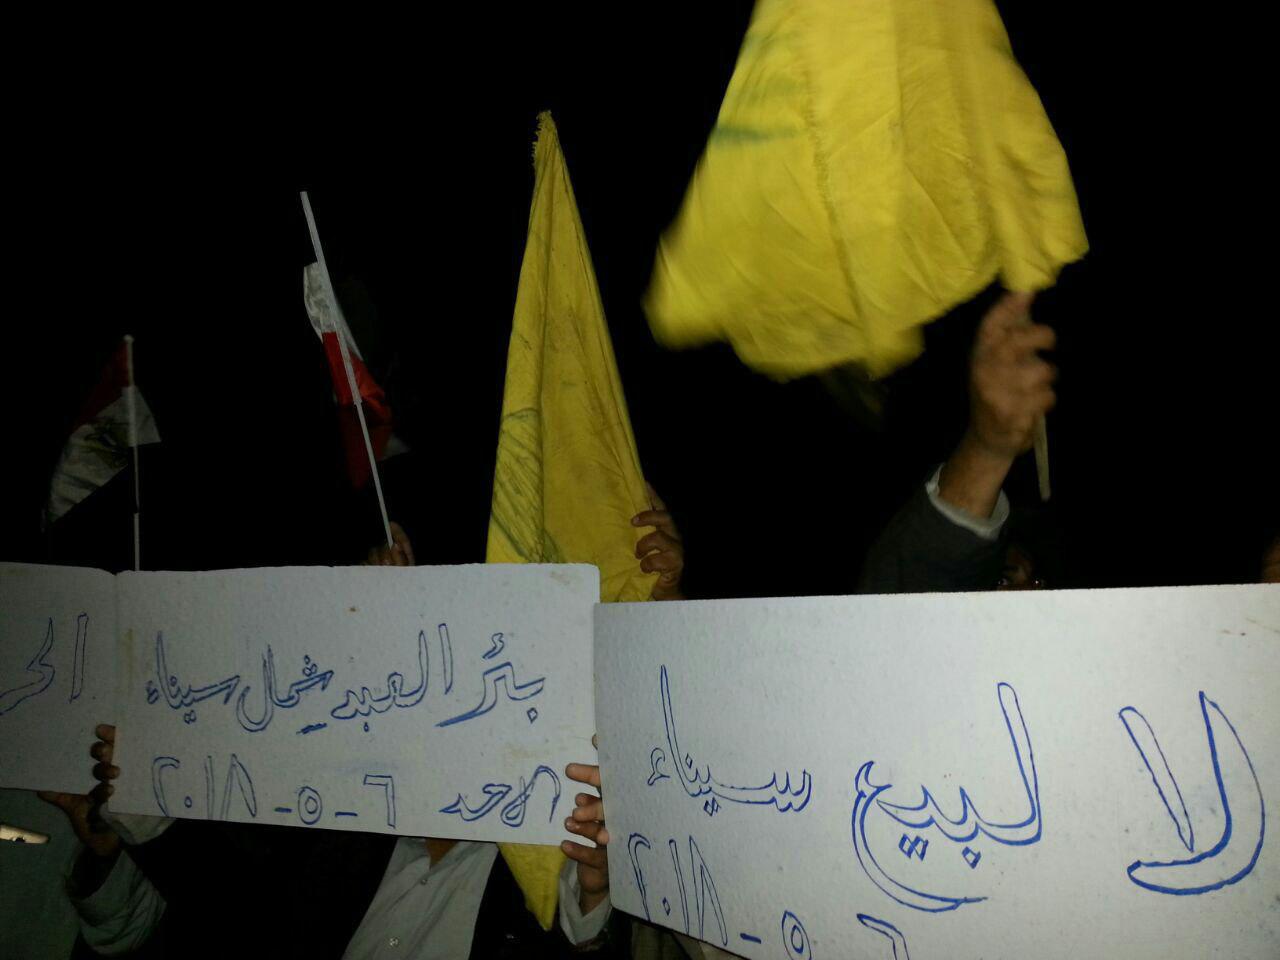 لا لبيع سيناء
٦ - ٥ - ٢٠١٨
بئر العبد شمال سيناء
الاحد ٦ - ٥ - ٢٠١٨